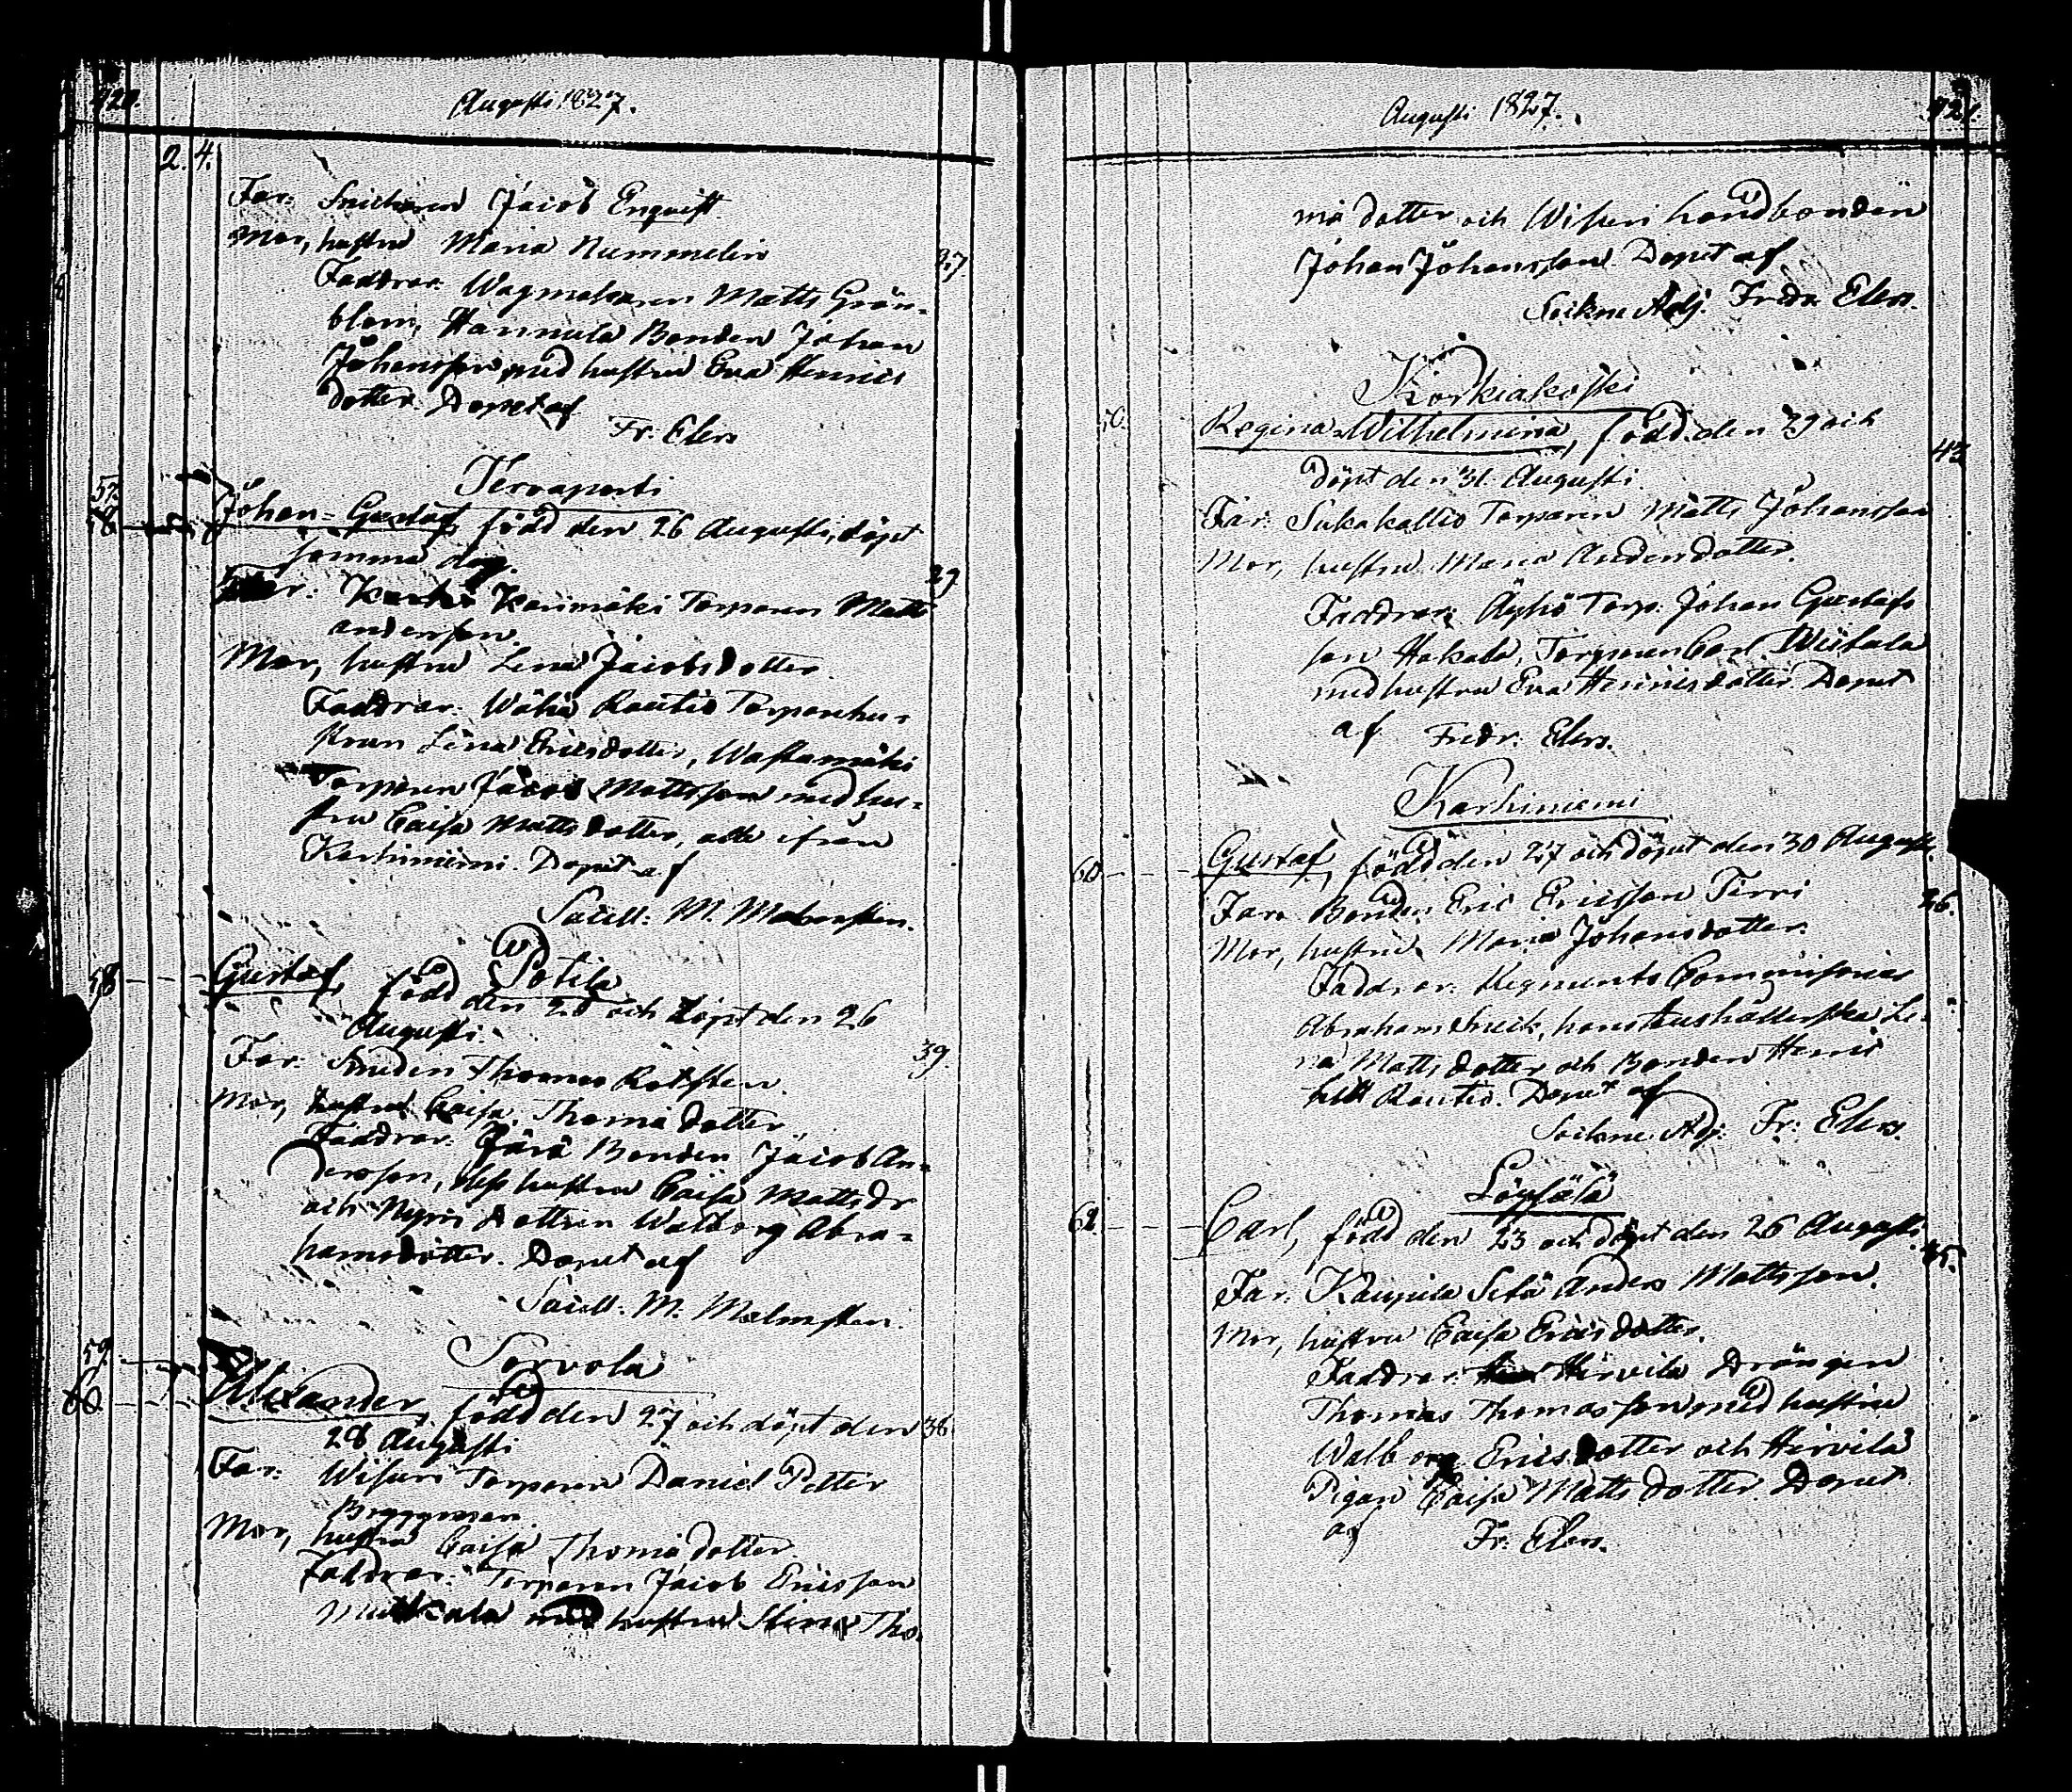 Augusti 1827.
2. 4.
Far: Snickaren Jacob Enqvist
Mor, hustru Maria Nummelin 27
Faddrar: Wagmakaren Matts Grön-
blom, Hannula Bonden Johan
Johansson med hustru Eva Henrics
dotter. Döpet af
Fr: Elers
Tervaperti
57.
58 Johan-Gustaf, född den 26 Augusti, döpt
samma dag. 29
Far: Karimäki Torparen Matts
andersson.
Mor, hustru Lena Jacobsdotter.
Faddrar: Wähä Rautio Torparehu-
strun Lena Ericsdotter, Wastamäki
Torparen Jacob Mattsson med hu-
stru Caisa Mattsdotter, alla ifrån
Karhiniemi. Döpet af
Sacell: M. Malmsten.
Sotila
58 Gustaf, född den 20 och döpt den 26
Augusti. 39.
Far: Smeden Thomas Rotsten
Mor, hustru Caisa Thomædotter
Faddrar: Jårå Bonden Jacob An-
dersson, dess hustru Caisa Mattsdr
och Nyri dottren Walborg Abra-
hamsdotter. Döpet af
Sacell: M: Malmsten.
Sorvola
59.
60 Alexander, född den 27 och döpt den 36
28 Augusti
Far: Wisuri Torparen Daniel Petter
Mor, hustru Caisa Thomædotter
Faddrar: Torparen Jacob Ericsson
med hustru Stina Tho-
Augusti 1827. 421.
mædotter och Wisuri Landbonden
Johan Johansson. Döpet af
Sockne Adj. Fredr Elers.
Korkiakoski
Regina Wilhelmina, född den 29 och
döpt den 31. Augusti. 43
Far: Sukakallio Torparen Matts Johansson
Mor, hustru Maria Andersdotter.
Faddrar: Äyhö Torp: Johan Gustafs
son Hakala, Torparen Carl Wiitala
med hustru Eva Henricsdotter. Döpet
af Fredr: Elers.
Karhiniemi
60 Gustaf, född den 27 och döpet den 30 Augusti.
Far: Bonden Eric Ericsson Tirri 26.
Mor, hustru Maria Johansdotter.
Faddrar: Regements Commissarien
Abraham Sneck, hans Hushållerska Le-
na Mattsdotter och Bonden Henric
Rautio. Döpet af
Sockne Adj: Fr: Elers.
Löyfälä
62. Carl, född den 23 och döpt den 26 Augusti.
Far: Kaupila Setä Anders Mattsson. 35.
Mor, hustru Caisa Ericsdotter.
Faddrar: Hirvila Drängen
Thomas Thomasson med hustru
Walborg Ericsdotter och Hirvila
Pigan Caisa Mattsdotter. Döpet
af Fr: Elers.